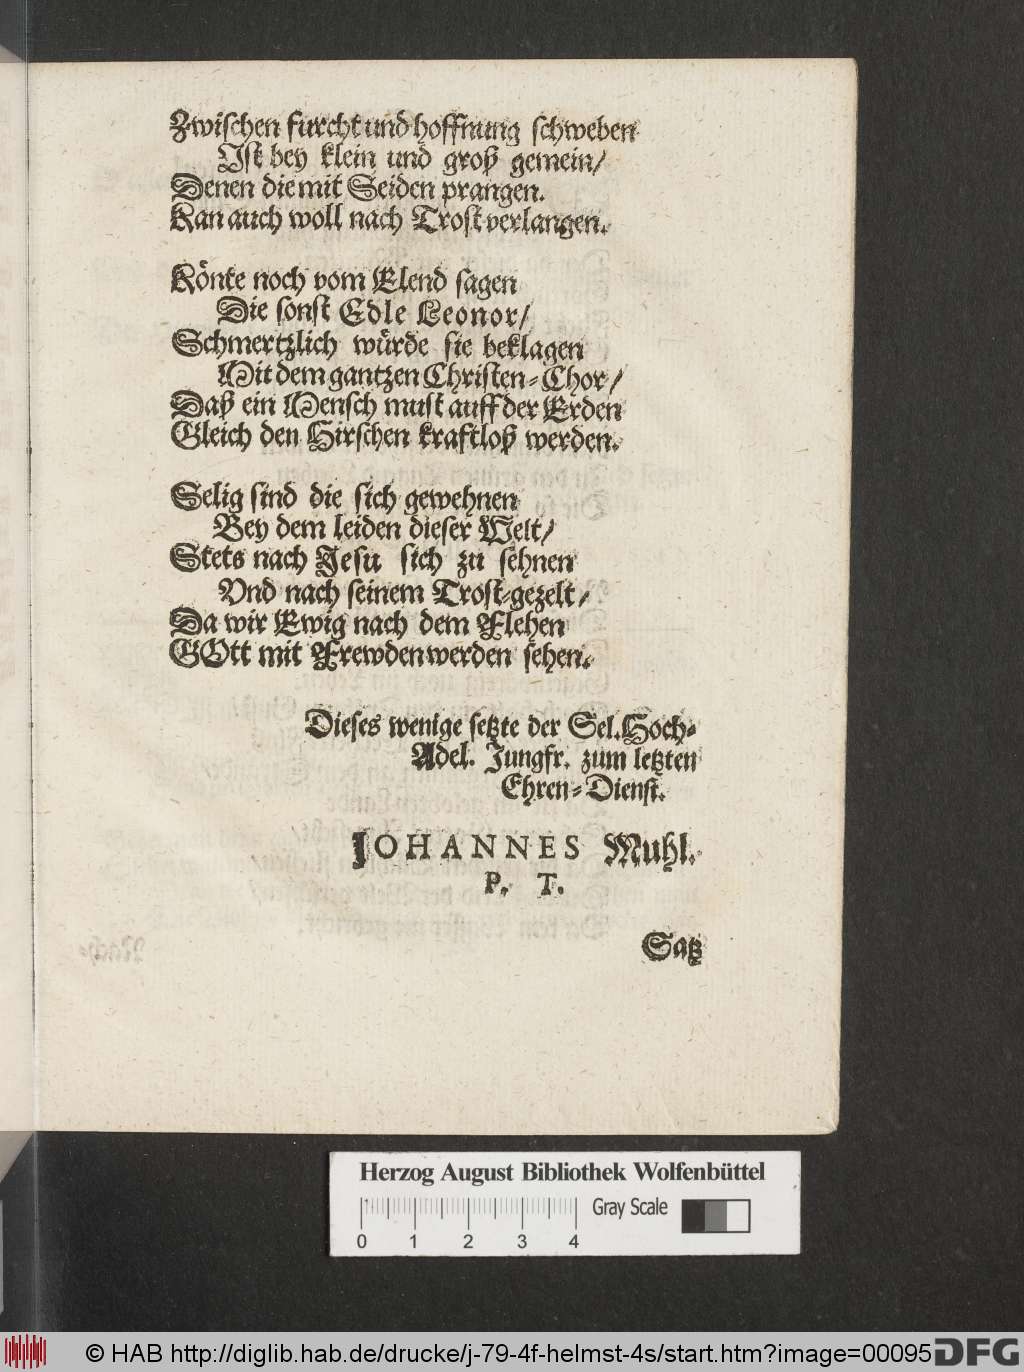 Zwischen furcht und hoffnung schweben
Ist bey klein und groß gemein/
Denen die mit Seiden prangen.
Kan auch woll nach Trost verlangen.
Könte noch vom Elend sagen
Die sonst Edle Leonor/
Schmertzlich würde sie beklagen
Mit dem gantzen Christen-Chor/
Daß ein Mensch must auff der Erden
Gleich den Hirschen kraftloß werden.
Selig sind die sich gewehnen
Bey dem leiden dieser Welt/
Stets nach Jesu sich zu sehnen
Vnd nach seinem Trost-gezelt/
Da wir Ewig nach dem Flehen
GOtt mit Frewden werden sehen.
Dieses wenige setzte der Sel. Hoch-
Adel. Jungfr. zum letzten
Ehren-Dienst.
JOHANNES Muhl.
P. T.
Satz
Herzog August Bibliothek Wolfenbüttel
Gray Scale
0 1 2 3 4
© HAB http://diglib.hab.de/drucke/j-79-4f-helmst-4s/start.htm?image=00095
DFG